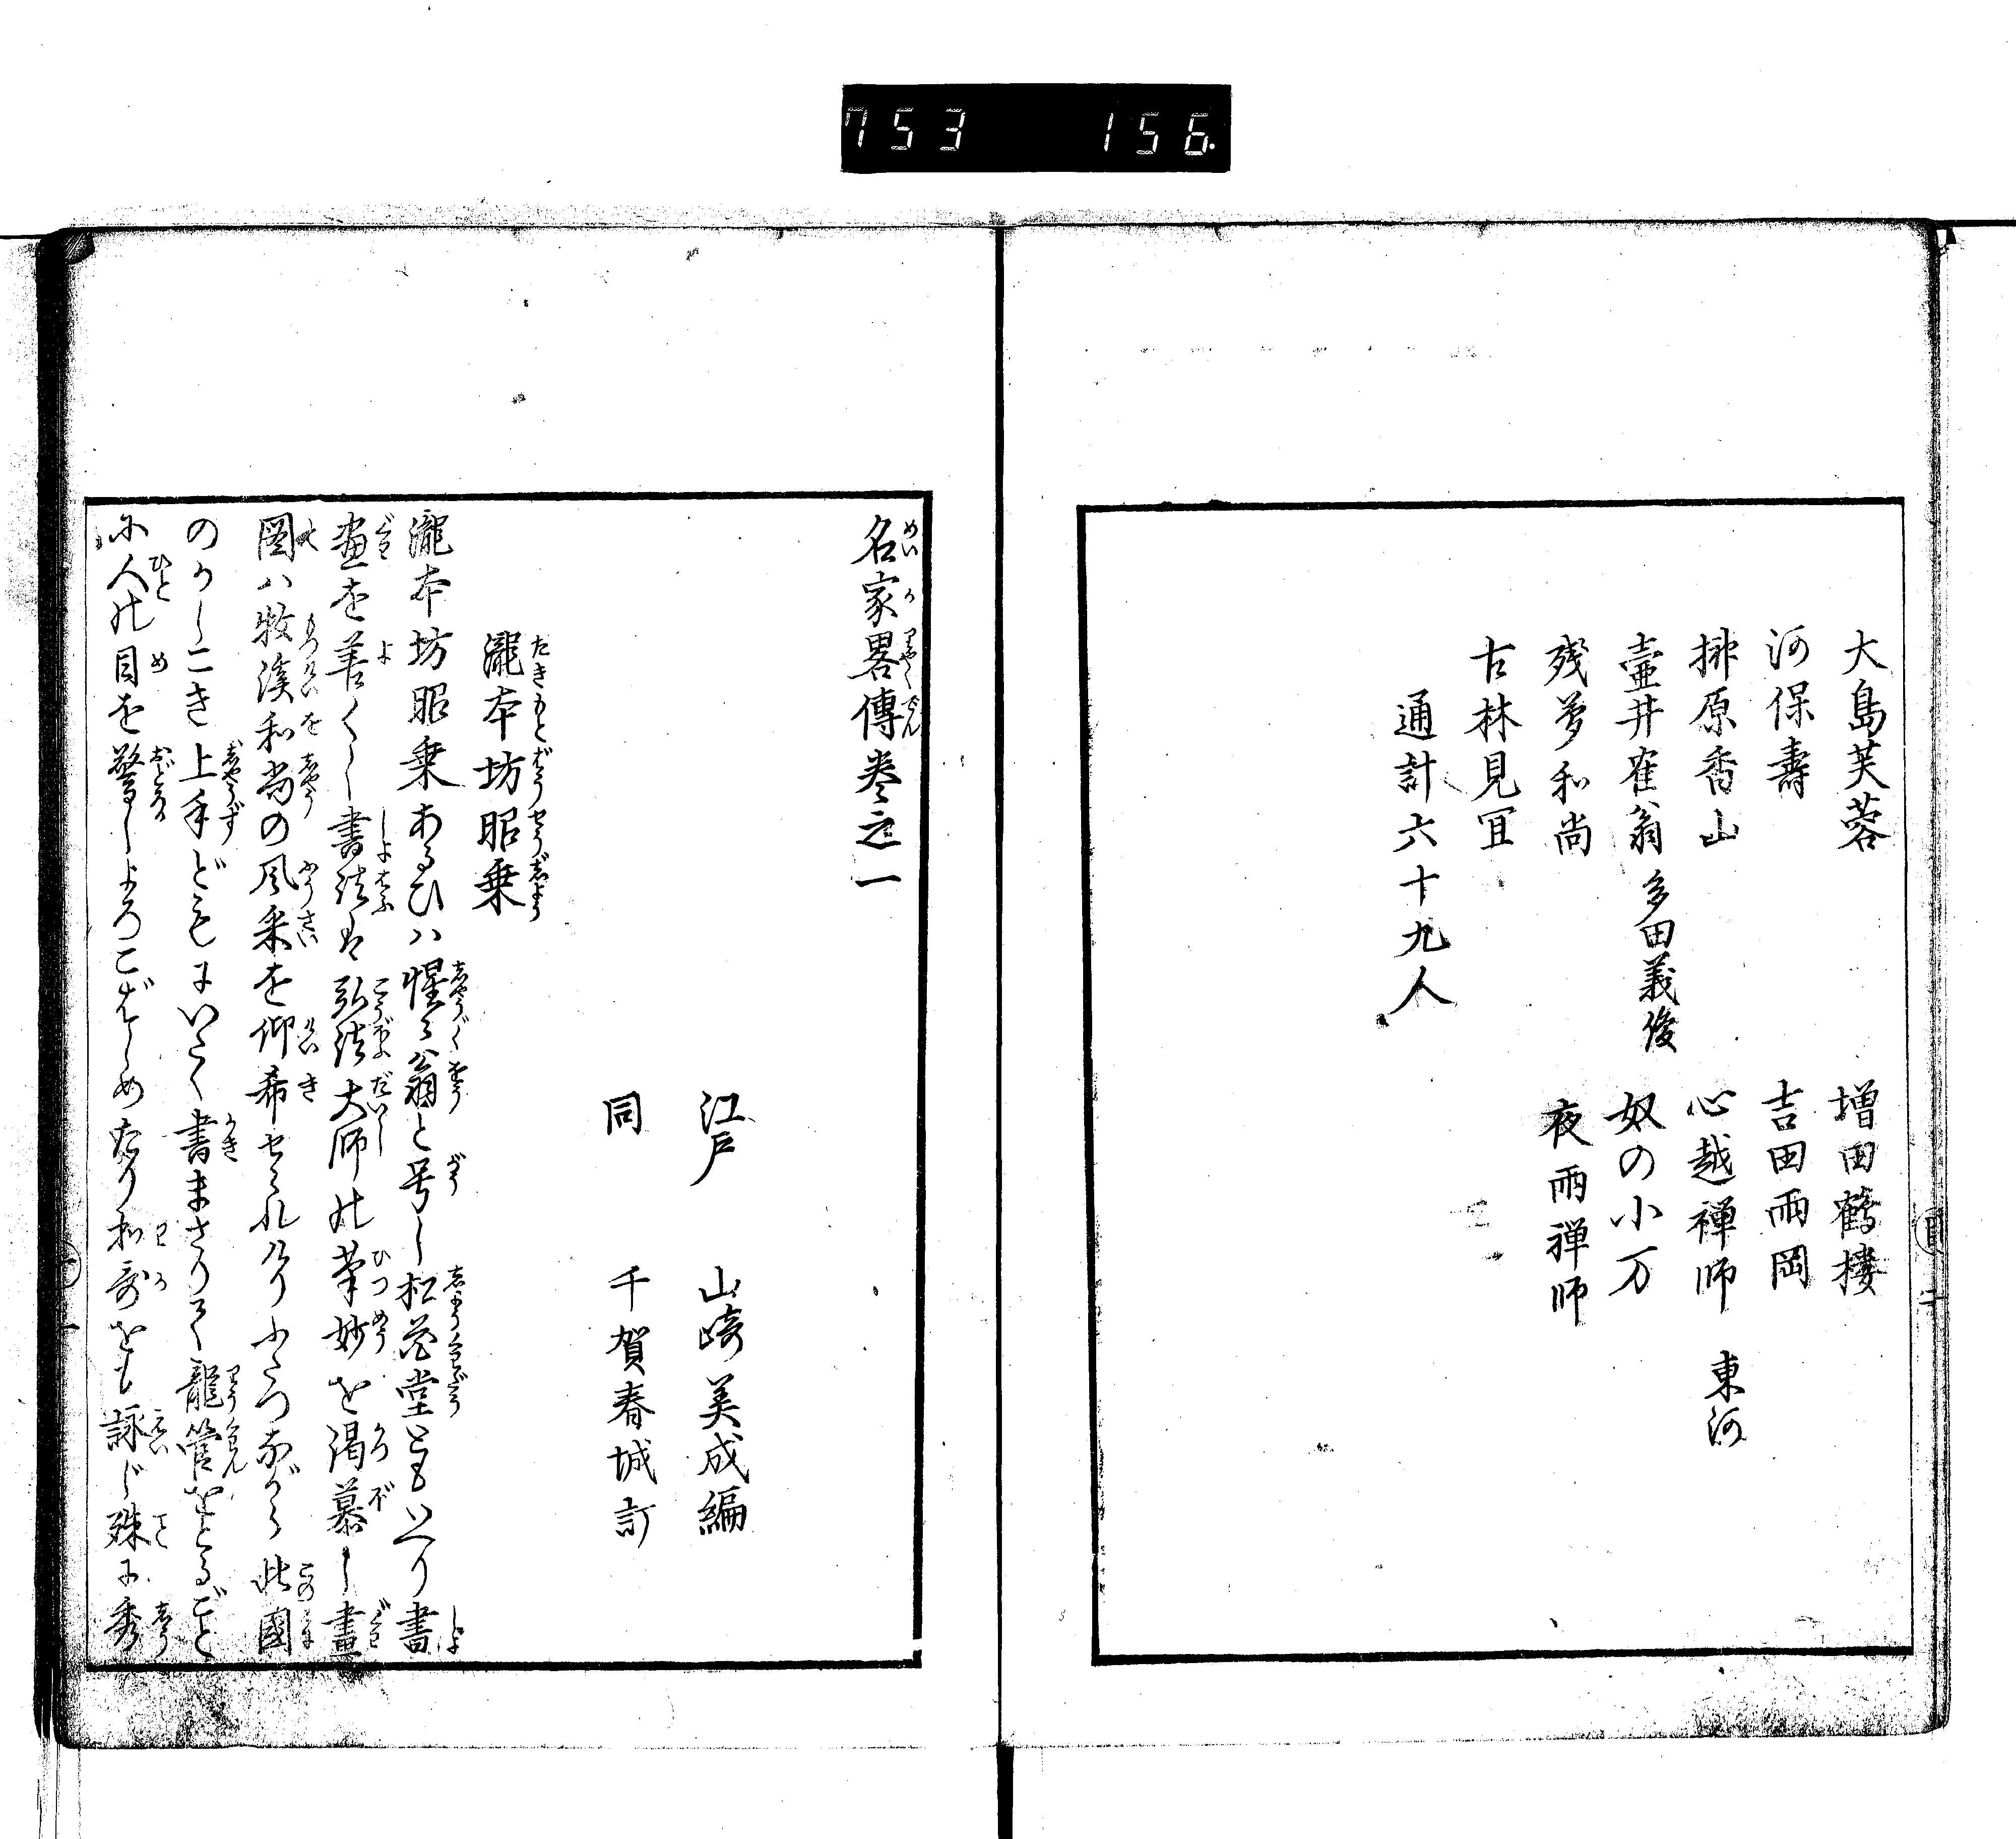 753 156
大島芙蓉 増田鶴樓
河保壽 吉田雨岡
榊原香山 心越禅師 東河
壷井隺翁 多田義俊 奴の小万
残夢和尚 夜雨禅師
古林見冝
通計六十九人
名家畧傳巻之一
江戸 山崎美成編
同 千賀春城訂
瀧本坊昭乗
瀧本坊昭乗あるひハ惺々翁と号し松花堂ともいへり書
画を善くし書法は弘法大師の筆妙を渇慕し畫
圖ハ牧溪和尚の風采を仰希せられけりふたつながら此國
のかしこき上手どもにいたく書まさりて龍管をとるごと
に人の目を驚しよろこばしめたり和歌をも詠じ殊に秀